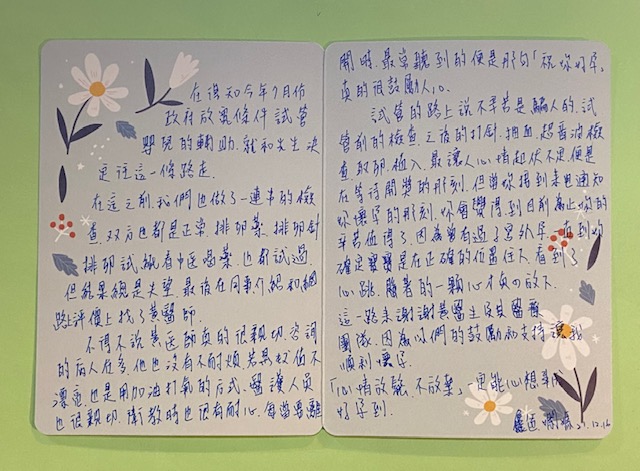 在得知今年7月份
政府放寬條件試管
嬰兒的輔助.就和先生決
定往這一條路走.
在這之前我們也做了一連串的檢
查.双方也都是正常.排卵藥.排卵針
排卵試紙看中医喝藥也都試過.
但結果總是失望.最後在同事介紹和網
路評價上找了黃醫師.
不得不說黃医師真的很親切.咨詢
的病人在多.他也沒有不耐煩.若是報值不
漂亮也是用加油打氣的方式.醫護人員
也很親切.衛教時也很有耐心.每當要離
開時.最常聽到的便是那句「祝你好孕」
真的很鼓勵人心.
試管的路上說不辛苦是騙人的.試
管前的檢查.之後的打針.抽血.超音波檢
查取卵.植入.最讓人心情起伏不定便是
在等待開獎的那刻.但當妳接到來电通知
妳懷孕的那刻.妳會覺得到目前為止妳的
辛苦值得了.因為曾有過子宮外孕.直到
確定寶寶是在正確的位置住下.看到了
心跳.懸著的一顆心才真的放下
這一路来謝謝黃醫生及其醫療
團隊.因為你們的鼓勵和支持讓我
順利懷孕.
「心情放鬆.不放棄」一定能心想事
好孕到.
12.16